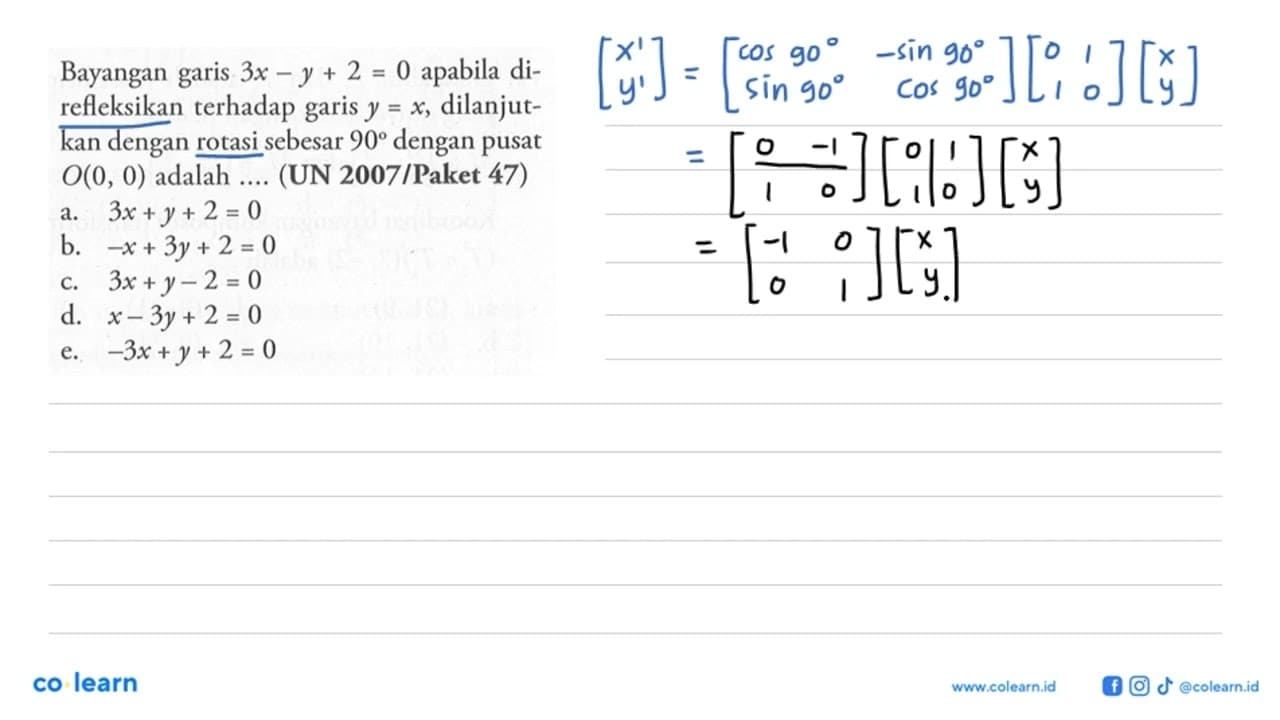 Bayangan garis 3x – y + 2 = 0 apabila di-
refleksikan terhadap garis y = x, dilanjut-
kan dengan rotasi sebesar 90° dengan pusat
O(0, 0) adalah .... (UN 2007/Paket 47)
a. 3x + y + 2 = 0
b. –x + 3y + 2 = 0
c. 3x + y – 2 = 0
d. x – 3y + 2 = 0
e. –3x + y + 2 = 0
[x' y'] = [cos 90° -sin 90° sin 90° cos 90°] [0 1 1 0] [x y]
= [0 -1 1 0] [0 1 1 0] [x y]
= [-1 0 0 1] [x y]
co learn
www.colearn.id
@colearn.id